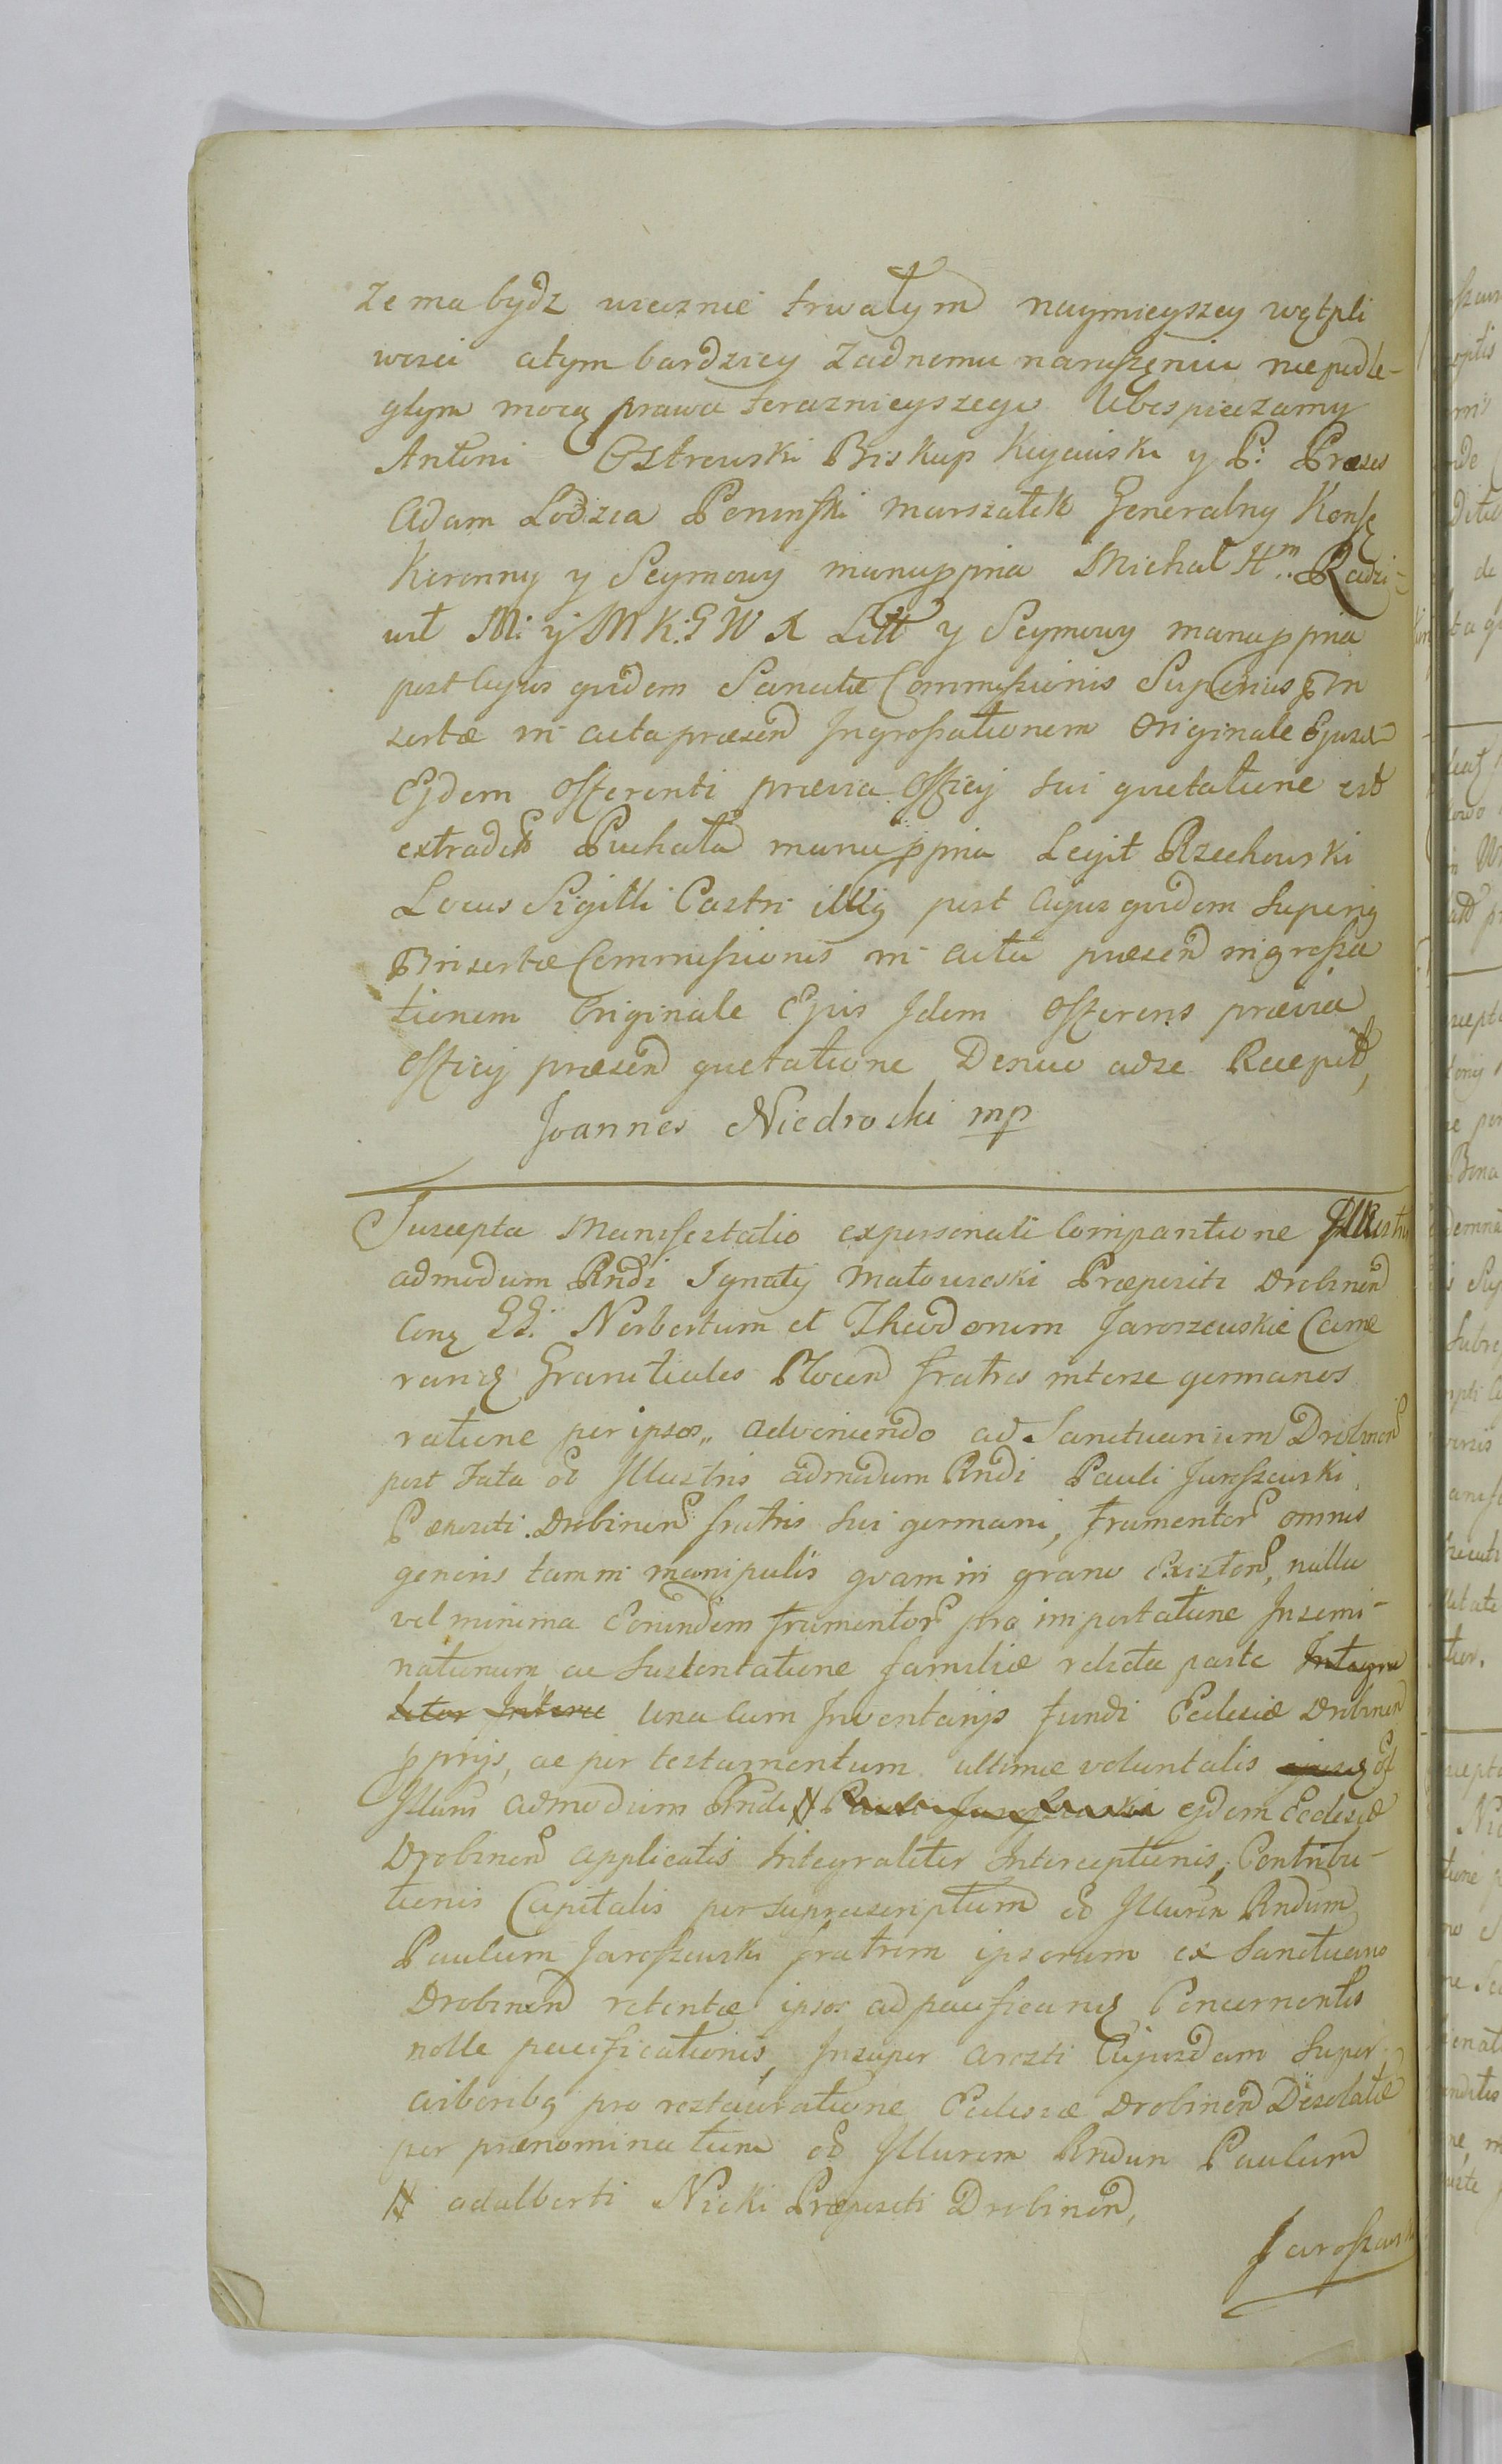 ze ma bydz wiecznie trwałym naymnieyszey wątpli
wosci atym bardziey zadnemu naruszęniu niepodle-
głym mocą prawa teraznieyszego Ubespieczamy
Antoni Ostrowski Biskup Kujawski y P: Præses
Adam Lodzia Poninski Marszałek Generalny Konfę
Koronny y Seymowy manuppria Michał Hm: Radzi-
wił M: y M K: G W X Litt y Seymowy manuppria
post cujus quidem Sancitæ Commissionis Superius Prin
sertæ in acta præsen Ingrossationem Originale Ejusd
Ejdem Offerenti prævia Officij sui quetatione est
extradit Puchała manuppria Legit Rzechowski
Locus Sigilli Castri illig post cujus quidem superig
Prinsertæ Commissionis in acta præsen ingrossa
tionem Originale Ejus Idem Offerens prævia
Officij præsen quetatione Denuo adse Recepit,
Joannes Niedroski mp
Suscepta Manifestatio expersonali Comparitione Illustris
admodum Rndi Ignatij Matowieski Præpositi Drobinen
Conq GG. Norbertum et Theodorum Jaroszewskie Came
rarios Granitiales Plocen fratres interse germanos
ratione per ipsos,, adveniendo ad Sanctuarium Drobinen
post Fata ol Illustris admodum Rndi Pauli Jaroszewski
Præpositi Drobinen fratris sui germani, frumentor omnis
generis tam in manipulis quam in grano Existen, nulla
vel minima Eorundem frumentor pro importatione Insemi-
nationum ac Sustentatione familiæ relicta parte Integra
liter Interce una cum Inventarijs fundi Ecclesiæ Drobinen
pprijs, ac per testamentum ultimæ voluntatis ejusd ol
Illuris admodum Rndi # Pauli Jaroszewski ejdem Ecclesiæ
Drobinen applicatis Integraliter Interceptionis, Contribu-
tionis Capitalis per suprascriptum ol Illurem Rndum
Paulum Jaroszewski fratrem ipsorum ex Sanctuario
Drobinen retentæ ipsos ad pacificanq Concernentis
nolle pacificationis, Insuper aresti Cujusdam super
arboribq pro restauratione Ecclesiæ Drobinen Desolatæ
per prænominatum ol Illurem Rndum Paulum
# adalberti Nicki Præpositi Drobinen,
Jaroszews